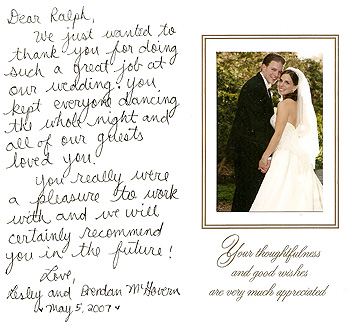 Dear Ralph,
We just wanted to
thank you for doing
such a great job at
our wedding. You
kept everyone dancing
the whole night and
all of our guests
loved you.
You really were
a pleasure to work
with and we will
certainly recommend
you in the future!
Love,
Lesley and Brendan McGovern
May 5, 2007
Your thoughtfulness
and good wishes
are very much appreciated